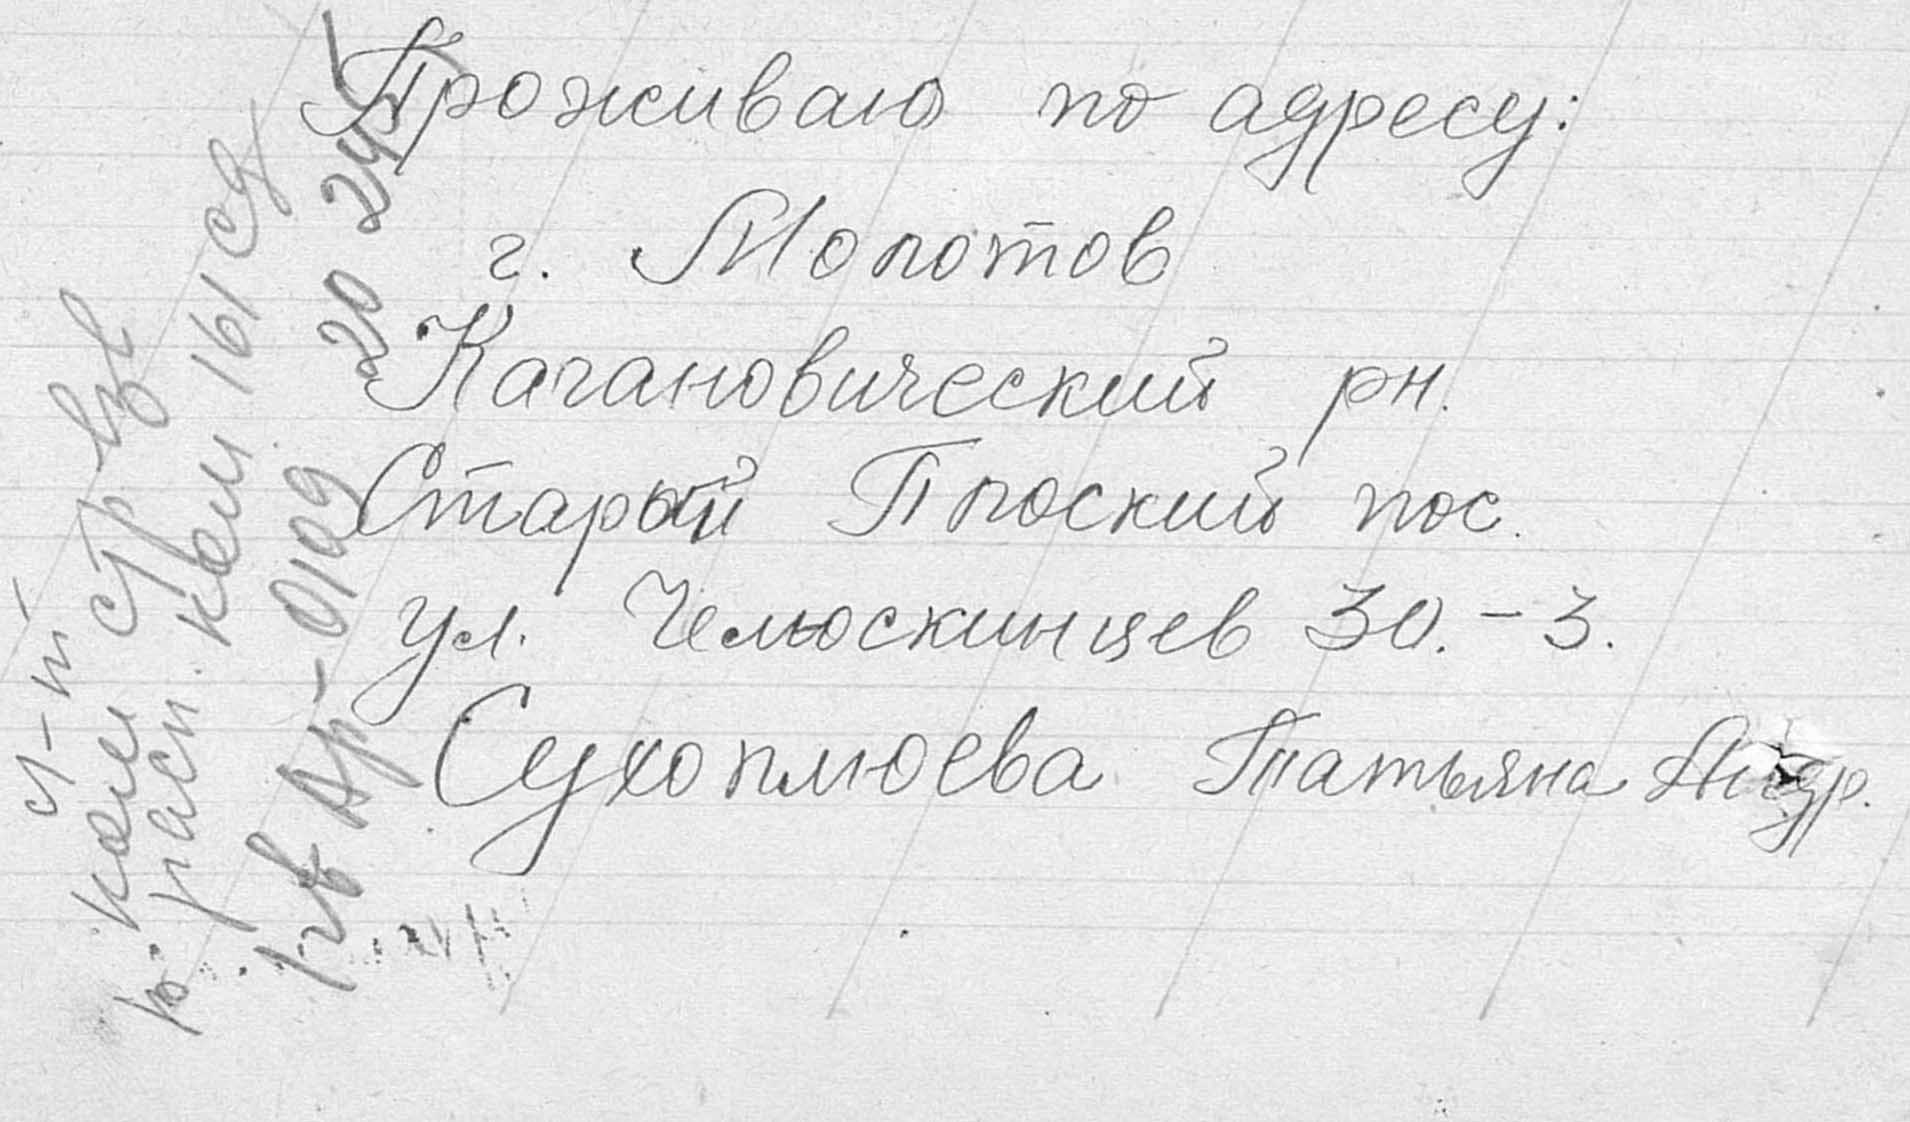 Проживаю по адресу:
г. Молотов
Кагановический рн.
Старый Плоский пос.
ул. Челюскинцев 30.-3.
Сухоплюева Татьяна Андр.
л-т
ком стр взв
расп. ком 161 сд
Ар-0109 20 245